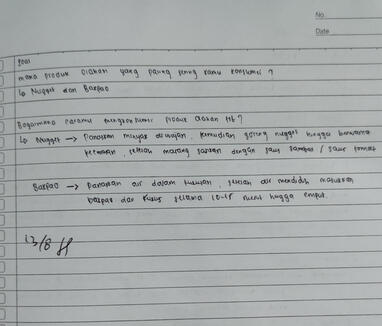 No.
Date
Soal
mana produk olahan yang paling sering kamu konsumsi ?
↳ Nugget dan Bakpao
Bagaimana caramu mengkonsumsi produk olahan tsb ?
↳ Nugget → Panaskan minyak diwajan, kemudian goreng nugget hingga berwarna
keemasan, setelah matang sajikan dengan saus sambal / saus tomat
Bakpao → Panaskan air dalam kukusan, setelah air mendidih masukkan
bakpao dan kukus selama 10-15 menit hingga empuk.
13/8